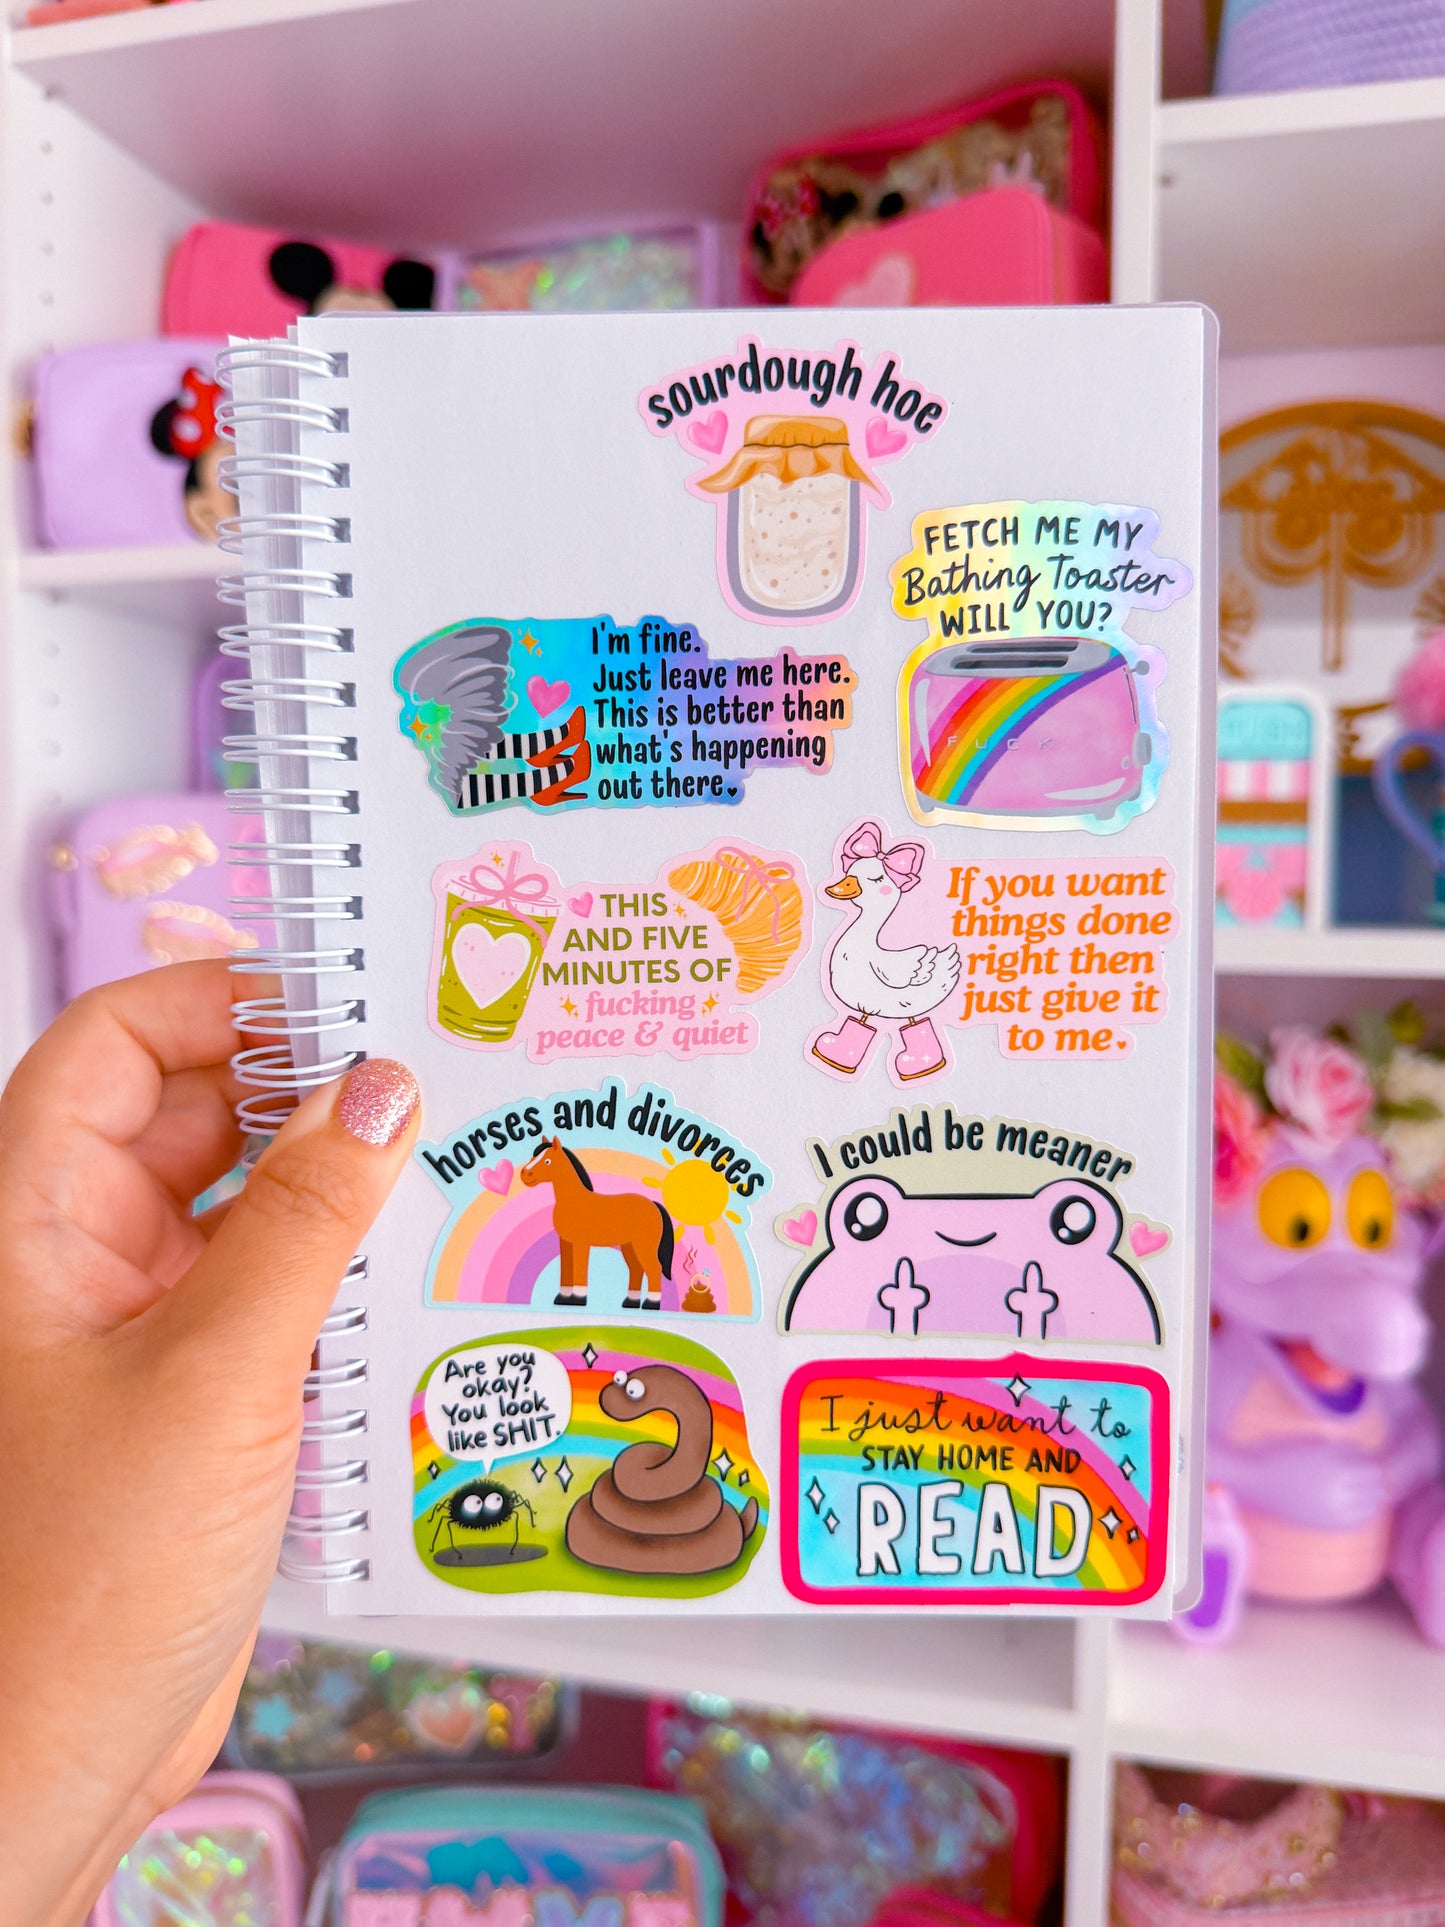 sourdough hoe
FETCH ME MY
Bathing Toaster
WILL YOU?
FUCK
I'm fine.
Just leave me here.
This is better than
what's happening
out there.
THIS
AND FIVE
MINUTES OF
fucking
peace & quiet
If you want
things done
right then
just give it
to me.
horses and divorces
I could be meaner
Are you
okay?
You look
like SHIT.
I just want to
STAY HOME AND
READ